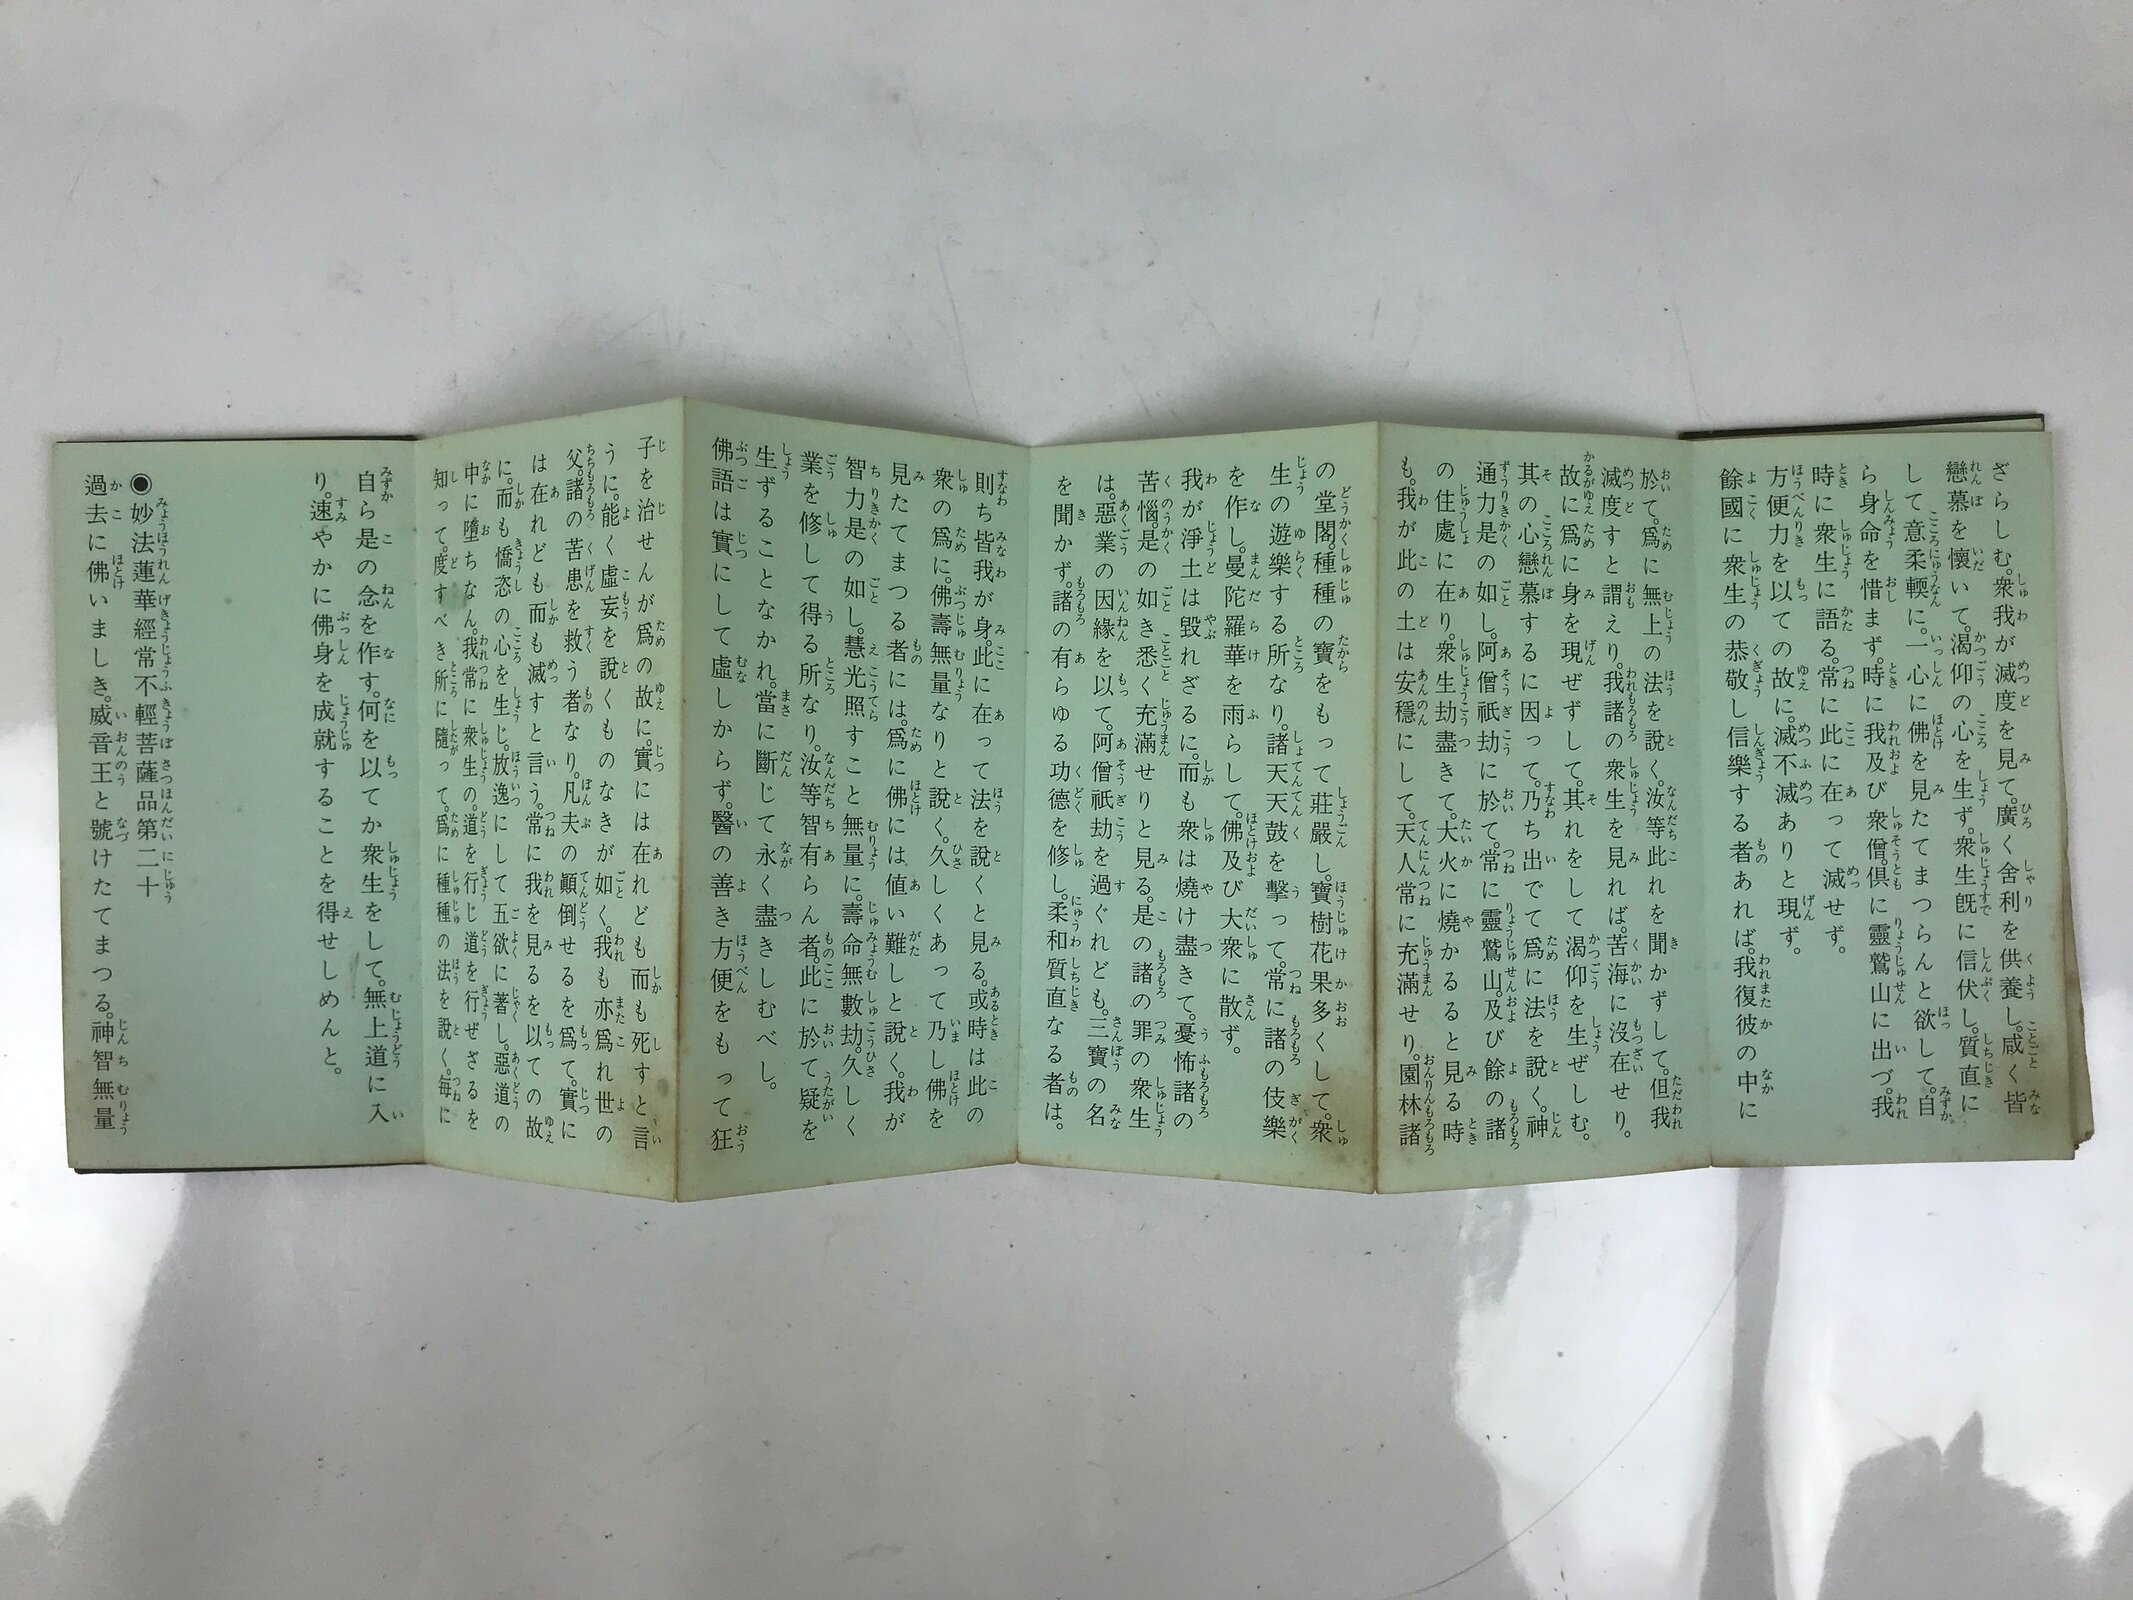 ざらしむ。衆我が滅度を見て。廣く舍利を供養し。咸く皆
戀慕を懷いて。渇仰の心を生ず。衆生既に信伏し。質直に
して意柔輭に。一心に佛を見たてまつらんと欲して。自
ら身命を惜まず。時に我及び衆僧。倶に靈鷲山に出づ。我
時に衆生に語る。常に此に在って滅せず。
方便力を以ての故に。滅不滅ありと現ず。
餘國に衆生の恭敬し信樂する者あれば。我復彼の中に
於て。爲に無上の法を説く。汝等此れを聞かずして。但我
滅度すと謂えり。我諸の衆生を見れば。苦海に沒在せり。
故に爲に身を現ぜずして。其れをして渇仰を生ぜしむ。
其の心戀慕するに因って。乃ち出でて爲に法を説く。神
通力是の如し。阿僧祇劫に於て。常に靈鷲山。及び餘の諸
の住處に在り。衆生劫盡きて。大火に燒かるると見る時
も。我が此の土は安穩にして。天人常に充滿せり。園林諸
の堂閣。種種の寶をもって莊嚴し。寶樹花果多くして。衆
生の遊樂する所なり。諸天天鼓を擊って。常に諸の伎樂
を作し。曼陀羅華を雨らして。佛及び大衆に散ず。
我が淨土は毀れざるに。而も衆は燒け盡きて。憂怖諸の
苦惱。是の如き悉く充滿せりと見る。是の諸の罪の衆生
は。惡業の因緣を以て。阿僧祇劫を過ぐれども。三寶の名
を聞かず。諸の有らゆる功德を修し。柔和質直なる者は。
則ち皆我が身。此に在って法を説くと見る。或時は此の
衆の爲に。佛壽無量なりと説く。久しくあって乃し佛を
見たてまつる者には。爲に佛には値い難しと説く。我が
智力是の如し。慧光照すこと無量に。壽命無數劫。久しく
業を修して得る所なり。汝等智有らん者。此に於て疑を
生ずることなかれ。當に斷じて永く盡きしむべし。
佛語は實にして虛しからず。醫の善き方便をもって狂
子を治せんが爲の故に。實には在れども而も死すと言
うに。能く虛妄を説くものなきが如く。我も亦爲れ世の
父。諸の苦患を救う者なり。凡夫の顚倒せるを爲て。實に
は在れども而も滅すと言う。常に我を見るを以ての故
に。而も憍恣の心を生じ。放逸にして五欲に著し。惡道の
中に墮ちなん。我常に衆生の。道を行じ道を行ぜざるを
知って。度すべき所に隨って。爲に種種の法を説く。毎に
自ら是の念を作す。何を以てか衆生をして。無上道に入
り。速やかに佛身を成就することを得せしめんと。
◉妙法蓮華經常不輕菩薩品第二十
過去に佛いましき。威音王と號けたてまつる。神智無量